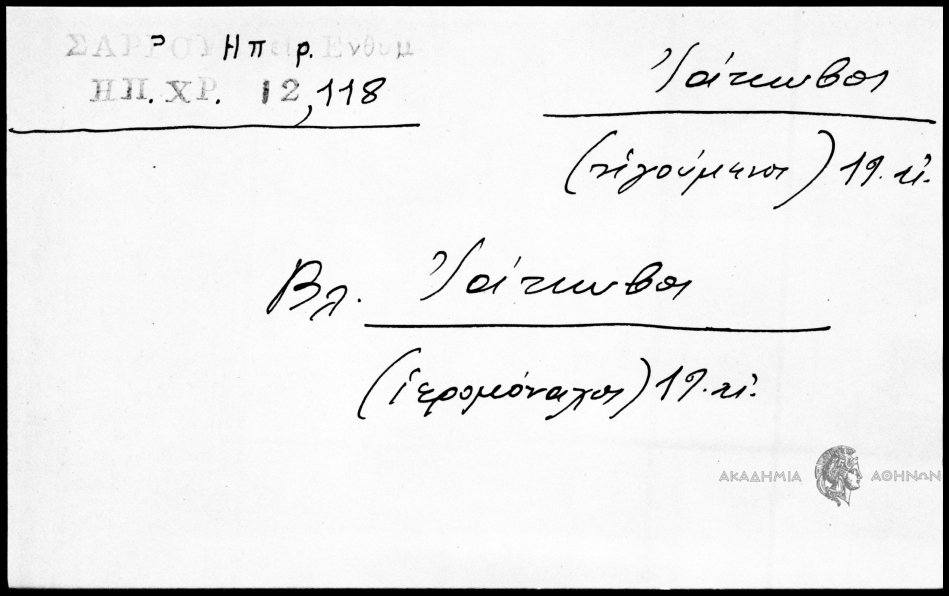 ΣΑΡΡΟΥ Ηπειρ. Ενθυμ
ΗΠ. ΧΡ. 12, 118
Ἰάκωβος
(ἡγούμενος) 19. αἰ.
Βλ. Ἰάκωβος
(ἱερομόναχος) 19. αἰ.
ΑΚΑΔΗΜΙΑ ΑΘΗΝΩΝ